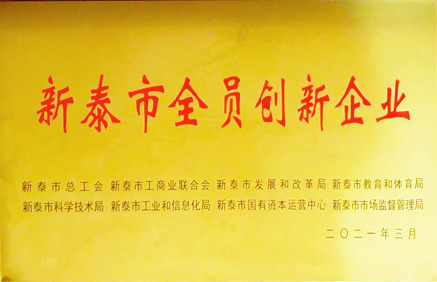 新泰市全员创新企业
新泰市总工会 新泰市工商业联合会 新泰市发展和改革局 新泰市教育和体育局
新泰市科学技术局 新泰市工业和信息化局 新泰市国有资本运营中心 新泰市市场监督管理局
二〇二一年三月